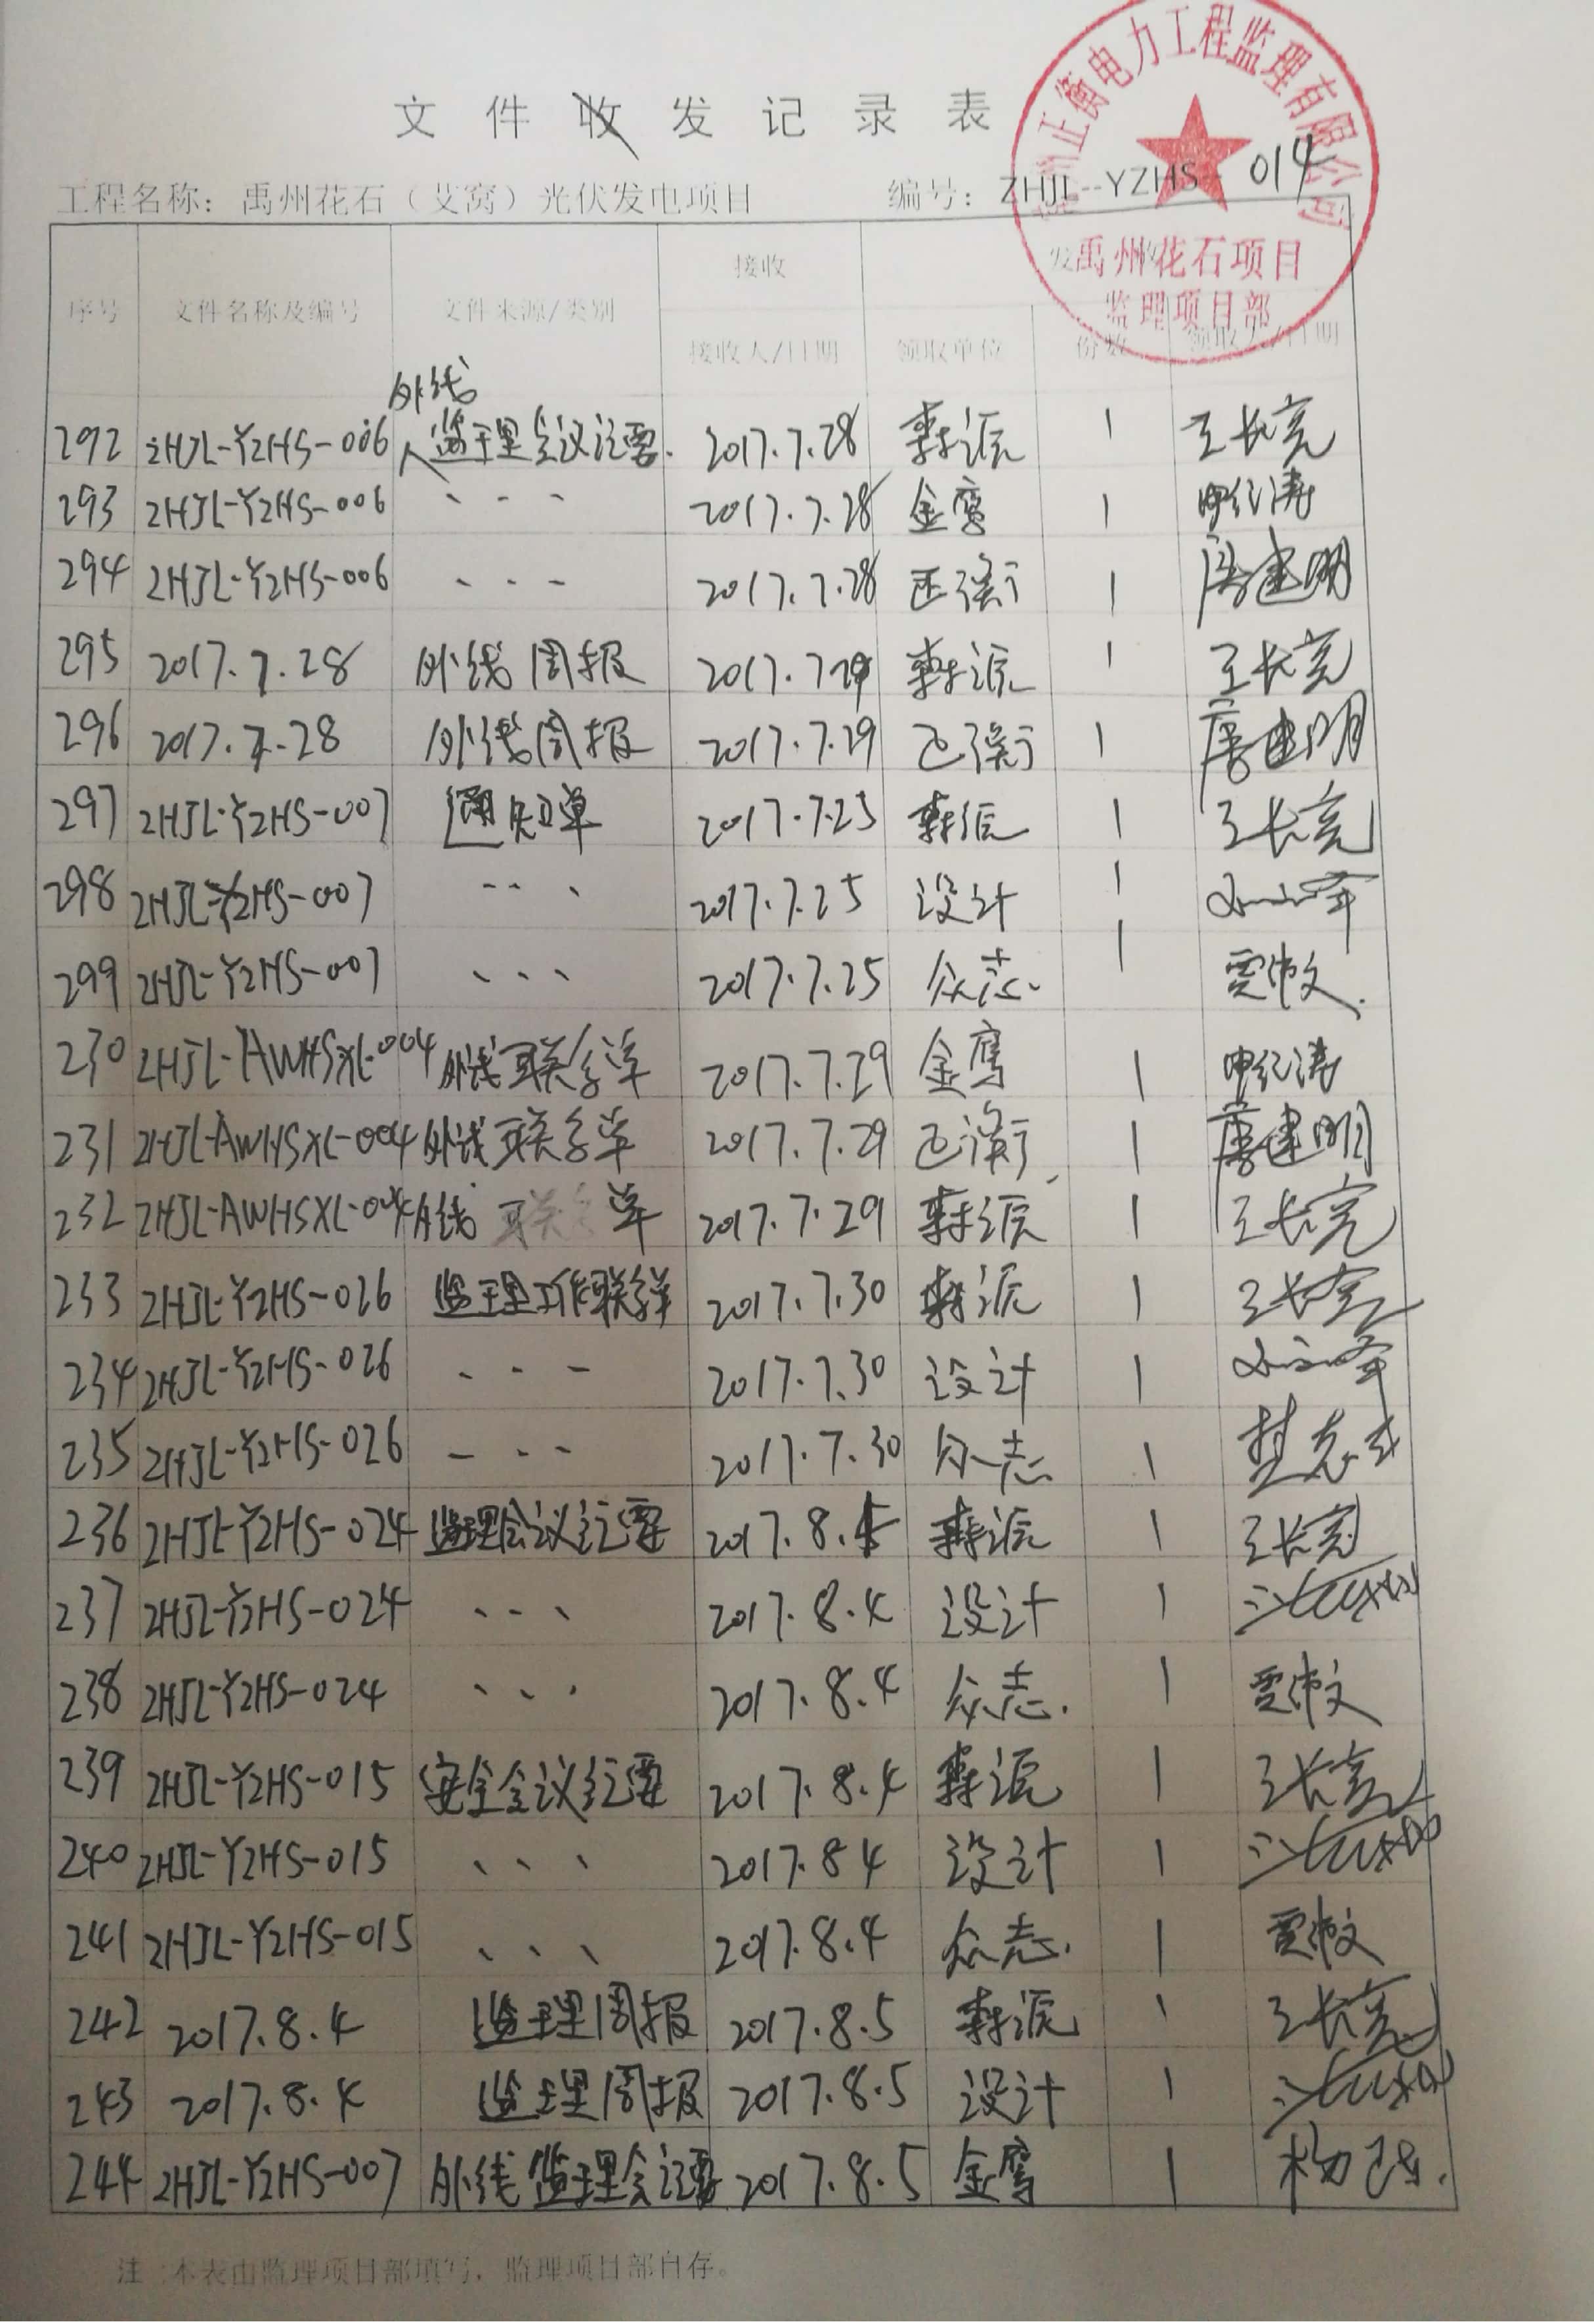 文件收发记录表
工程名称：禹州花石（艾窝）光伏发电项目 编号：ZHJL--YZHS- 014
正衡电力工程监理有限公司
禹州花石项目
监理项目部
序号 文件名称及编号 文件来源/类别 接收 发
接收人/日期 领取单位 份数 领取人/日期
外线
292 ZHJL-YZHS-006 监理会议记要. 2017.7.28 森源 1 王长亮
293 ZHJL-YZHS-006 、、、 2017.7.28 金鹰 1 申纪涛
294 ZHJL-YZHS-006 、、、 2017.7.28 正衡 1 唐建明
295 2017.7.28 外线周报 2017.7.29 森源 1 王长亮
296 2017.7.28 外线周报 2017.7.29 正衡 1 唐建明
297 ZHJL-YZHS-007 通知单 2017.7.25 森源 1 王长亮
298 ZHJL-YZHS-007 、、、 2017.7.25 设计 1
299 ZHJL-YZHS-007 、、、 2017.7.25 众志. 1
230 ZHJL-AWHSXL-004 外线联系单 2017.7.29 金鹰 1 申纪涛
231 ZHJL-AWHSXL-004 外线联系单 2017.7.29 正衡 1 唐建明
232 ZHJL-AWHSXL-004 外线联系单 2017.7.29 森源 1 王长亮
233 ZHJL-YZHS-026 监理工作联系单 2017.7.30 森源 1 王长亮
234 ZHJL-YZHS-026 、、、 2017.7.30 设计 1
235 ZHJL-YZHS-026 、、、 2017.7.30 众志 1
236 ZHJL-YZHS-024 监理会议记要 2017.8. 森源 1 王长亮
237 ZHJL-YZHS-024 、、、 2017.8.4 设计 1
238 ZHJL-YZHS-024 、、、 2017.8.4 众志. 1
239 ZHJL-YZHS-015 安全会议记要 2017.8.4 森源 1 王长亮
240 ZHJL-YZHS-015 、、、 2017.8 4 设计 1
241 ZHJL-YZHS-015 、、、 2017.8.4 众志. 1
242 2017.8.4 监理周报 2017.8.5 森源 1 王长亮
243 2017.8.4 监理周报 2017.8.5 设计 1
244 ZHJL-YZHS-007 外线监理会记要 2017.8.5 金鹰 1
注：本表由监理项目部填写，监理项目部自存。